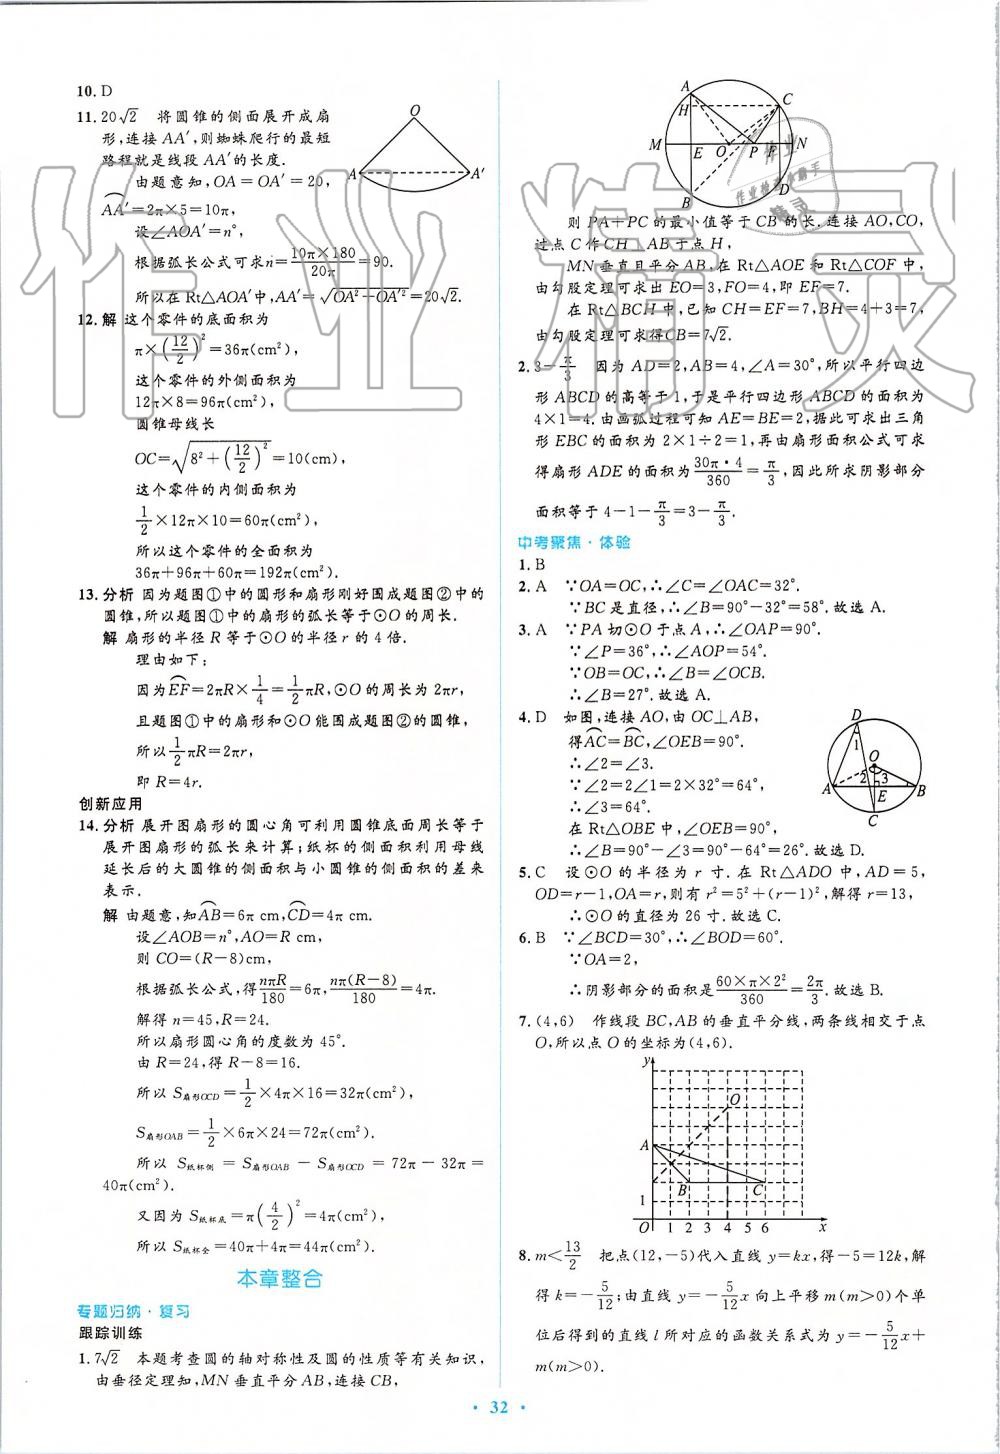 10. D
11. 20√2　将圆锥的侧面展开成扇
形,连接 AA′,则蜘蛛爬行的最短
路程就是线段 AA′的长度.
由题意知,OA=OA′=20,
AA′⌢=2π×5=10π,
设∠AOA′=n°,
根据弧长公式可求n=10π×180/20π=90.
所以在 Rt△AOA′中,AA′=√(OA²+OA′²)=20√2.
O
A
A′
12. 解 这个零件的底面积为
π×(12/2)²=36π(cm²),
这个零件的外侧面积为
12π×8=96π(cm²),
圆锥母线长
OC=√(8²+(12/2)²)=10(cm),
这个零件的内侧面积为
1/2×12π×10=60π(cm²),
所以这个零件的全面积为
36π+96π+60π=192π(cm²).
13. 分析 因为题图①中的圆形和扇形刚好围成题图②中的
圆锥,所以题图①中的扇形的弧长等于⊙O的周长.
解 扇形的半径 R 等于⊙O 的半径 r 的 4 倍.
理由如下:
因为EF⌢=2πR×1/4=1/2πR,⊙O 的周长为 2πr,
且题图①中的扇形和⊙O能围成题图②的圆锥,
所以1/2πR=2πr,
即 R=4r.
创新应用
14. 分析 展开图扇形的圆心角可利用圆锥底面周长等于
展开图扇形的弧长来计算;纸杯的侧面积利用母线
延长后的大圆锥的侧面积与小圆锥的侧面积的差来
表示.
解 由题意,知AB⌢=6π cm,CD⌢=4π cm.
设∠AOB=n°,AO=R cm,
则 CO=(R-8)cm,
根据弧长公式,得nπR/180=6π,nπ(R-8)/180=4π.
解得 n=45,R=24.
所以扇形圆心角的度数为 45°.
由 R=24,得 R-8=16.
所以 S扇形OCD=1/2×4π×16=32π(cm²).
S扇形OAB=1/2×6π×24=72π(cm²).
所以 S纸杯侧 = S扇形OAB - S扇形OCD = 72π - 32π =
40π(cm²).
又因为 S纸杯底=π(4/2)²=4π(cm²),
所以 S纸杯全=40π+4π=44π(cm²).
本章整合
专题归纳·复习
跟踪训练
1. 7√2　本题考查圆的轴对称性及圆的性质等有关知识,
由垂径定理知,MN 垂直平分 AB,连接 CB,
A
H
C
M
E
O
P
F
N
B
D
则 PA+PC的最小值等于 CB 的长.连接 AO,CO,
过点 C 作 CH⊥AB 于点 H,
MN 垂直且平分 AB,在 Rt△AOE 和 Rt△COF 中,
由勾股定理可求出 EO=3,FO=4,即 EF=7.
在 Rt△BCH 中,已知 CH=EF=7,BH=4+3=7,
由勾股定理可求得CB=7√2.
2. 3-π/3　因为 AD=2,AB=4,∠A=30°,所以平行四边
形 ABCD 的高等于 1,于是平行四边形 ABCD 的面积为
4×1=4.由画弧过程可知 AE=BE=2,据此可求出三角
形 EBC 的面积为 2×1÷2=1,再由扇形面积公式可求
得扇形 ADE 的面积为30π·4/360=π/3,因此所求阴影部分
面积等于 4-1-π/3=3-π/3.
中考聚焦·体验
1. B
2. A　∵OA=OC,∴∠C=∠OAC=32°.
∵BC 是直径,∴∠B=90°-32°=58°.故选 A.
3. A　∵PA 切⊙O 于点 A,∴∠OAP=90°.
∵∠P=36°,∴∠AOP=54°.
∵OB=OC,∴∠B=∠OCB.
∴∠B=27°.故选 A.
4. D　如图,连接 AO,由 OC⊥AB,
得AC⌢=BC⌢,∠OEB=90°.
∴∠2=∠3.
∵∠2=2∠1=2×32°=64°,
∴∠3=64°.
在 Rt△OBE 中,∠OEB=90°,
∴∠B=90°-∠3=90°-64°=26°.故选 D.
D
1
O
2
3
A
E
B
C
5. C　设⊙O 的半径为 r 寸.在 Rt△ADO 中,AD=5,
OD=r-1,OA=r,则有 r²=5²+(r-1)²,解得 r=13,
∴⊙O 的直径为 26 寸.故选 C.
6. B　∵∠BCD=30°,∴∠BOD=60°.
∵OA=2,
∴阴影部分的面积是60×π×2²/360=2π/3.故选 B.
7. (4,6)　作线段 BC,AB 的垂直平分线,两条线相交于点
O,所以点 O 的坐标为(4,6).
y
O
A
B
C
1
O 1 2 3 4 5 6 x
8. m<13/2　把点(12,-5)代入直线 y=kx,得-5=12k,解
得 k=-5/12;由直线 y=-5/12x 向上平移 m(m>0)个单
位后得到的直线 l 所对应的函数关系式为 y=-5/12x+
m(m>0).
· 32 ·
作业精灵
作业
作业检查小助手
精灵